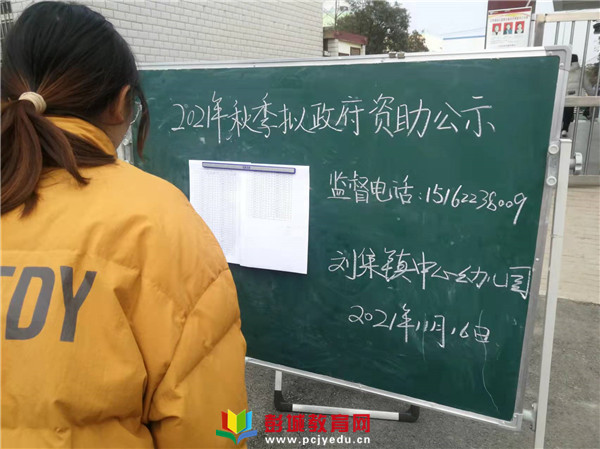 2021年秋季拟政府资助公示
监督电话:15162238009
刘集镇中心幼儿园
2021年11月16日
TDY
彭城教育网
www.pcjyedu.cn